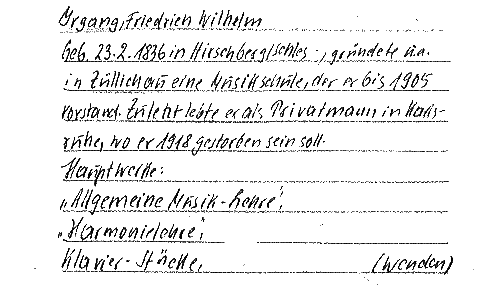 Irgang, Friedrich Wilhelm
Geb. 23.2.1836 in Hirschberg/Schles., gründete u.a.
in Züllichau eine Musikschule, der er bis 1905
vorstand. Zuletzt lebte er als Privatmann in Karls-
ruhe, wo er 1918 gestorben sein soll.
Hauptwerke:
„Allgemeine Musik-Lehre",
„Harmonielehre",
Klavier-Stücke, (wenden)